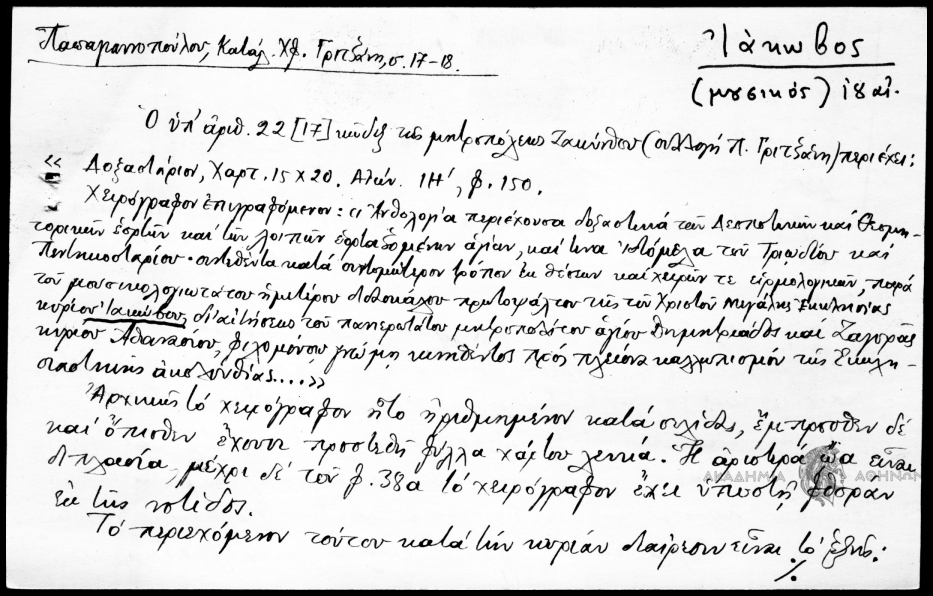 Παπαμανοπούλου, Κατάλ. Χφ. Γριτσάνη, σ. 17-18.
Ἰάκωβος
(μουσικός) ιθ' αἰ.
Ὁ ὑπ' ἀριθ. 22 [17] κῶδιξ τῆς μητροπόλεως Ζακύνθου (συλλογὴ Π. Γριτσάνη) περιέχει:
« Δοξαστάριον, Χαρτ. 15 x 20. Αἰών. ΙΗ', φ. 150.
Χειρόγραφον ἐπιγραφόμενον: « Ἀνθολογία περιέχουσα δοξαστικά τῶν Δεσποτικῶν καί Θεομη-
τορικῶν ἑορτῶν καί τῶν λοιπῶν ἑορταζομένων ἁγίων, καί τινα ἰδιόμελα τοῦ Τριῳδίου καί
Πεντηκοσταρίου· συντεθέντα κατά συντομώτερον τρόπον ἐκ θέσεων καί χειρῶν τε εἱρμολογικῶν, παρά
τοῦ μουσικολογιωτάτου ἡμετέρου διδασκάλου πρωτοψάλτου τῆς τοῦ Χριστοῦ Μεγάλης Ἐκκλησίας
κυρίου Ἰακώβου, δι' αἰτήσεως τοῦ πανιερωτάτου μητροπολίτου ἁγίου Δημητριάδος καί Ζαγορᾶς
κυρίου Ἀθανασίου, φιλομούσῳ γνώμῃ κινηθέντος πρός πλείονα καλλωπισμόν τῆς Ἐκκλη-
σιαστικῆς ἀκολουθίας....»
Ἀρχικῶς τό χειρόγραφον ἦτο ἠριθμημένον κατά σελίδας, ἔμπροσθεν δέ
καί ὄπισθεν ἔχουν προστεθῆ φύλλα χάρτου λευκά. Ἡ ἀριστερά ὤα εἶναι
διπλασία, μέχρι δέ τοῦ φ. 38α τό χειρόγραφον ἔχει ὑποστῆ φθοράν
ἐκ τῆς νοτίδος.
Τό περιεχόμενον τούτου κατά τήν κυρίαν διαίρεσιν εἶναι τό ἑξῆς:
./.
ΑΚΑΔΗΜΙΑ ΑΘΗΝΩΝ